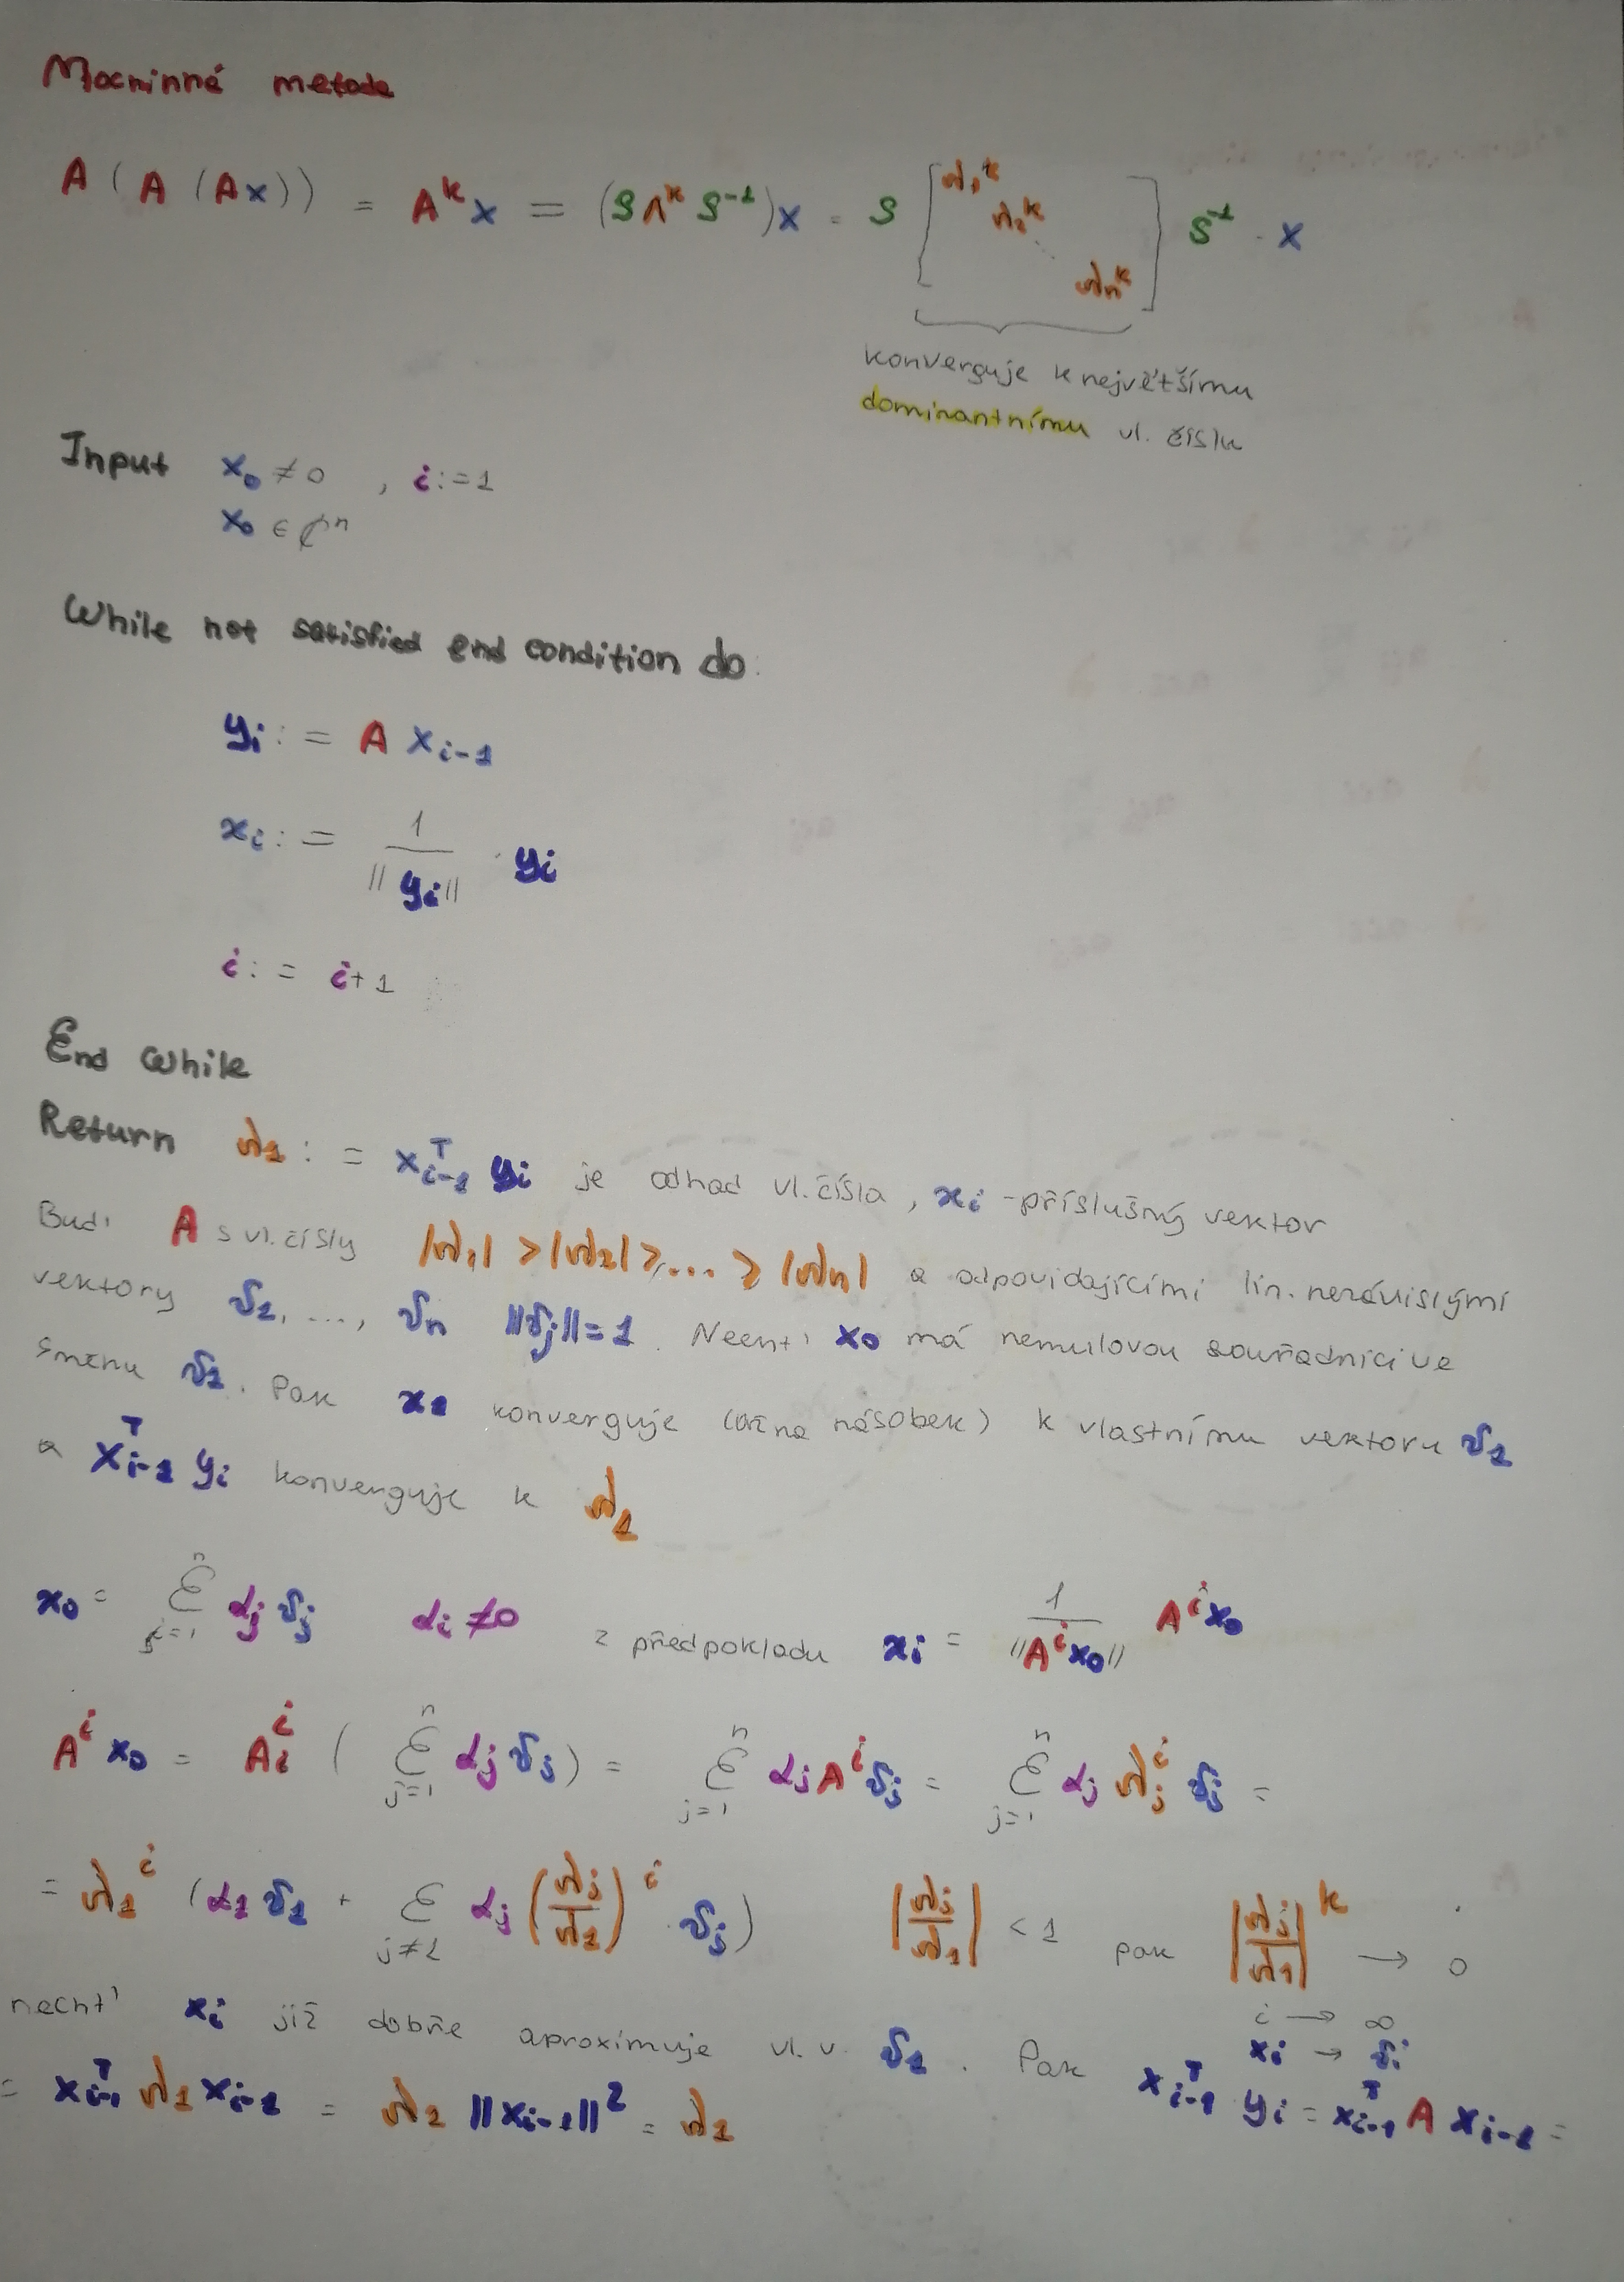 Mocninné metoda
A ( A (Ax)) = A^k x = (SΛ^k S^-1)x = S [ λ₁^k λ₂^k ⋱ λn^k ] S^-1 · x
konverguje k největšímu
dominantnímu vl. číslu
Input x₀ ≠ 0 , i := 1
x₀ ∈ ℂ^n
While not satisfied end condition do:
yi := A x_{i-1}
xi := 1 / ||yi|| · yi
i := i+1
End While
Return λ₁ := x_{i-1}^T yi je odhad vl. čísla, xi - příslušný vektor
Buď A s vl. čísly |λ₁| > |λ₂| ≥ ... ≥ |λn| a odpovídajícími lin. nezávislými
vektory v₁, ..., vn ||vj|| = 1. Nechť x₀ má nenulovou souřadnici ve
směru v₁. Pak xi konverguje (až na násobek) k vlastnímu vektoru v₁
a x_{i-1}^T yi konverguje k λ₁
x₀ = Σ_{j=1}^n αj vj αi ≠ 0 z předpokladu xi = 1 / ||A^i x₀|| A^i x₀
A^i x₀ = A^i ( Σ_{j=1}^n αj vj ) = Σ_{j=1}^n αj A^i vj = Σ_{j=1}^n αj λj^i vj =
= λ₁^i (α₁ v₁ + Σ_{j≠1} αj (λj/λ₁)^i · vj) |λj/λ₁| < 1 pak |λj/λ₁|^k → 0
i → ∞
nechť xi již dobře aproximuje vl. v. v₁. Pak x_{i-1}^T yi = x_{i-1}^T A x_{i-1} =
xi → vi
= x_{i-1}^T λ₁ x_{i-1} = λ₁ ||x_{i-1}||² = λ₁